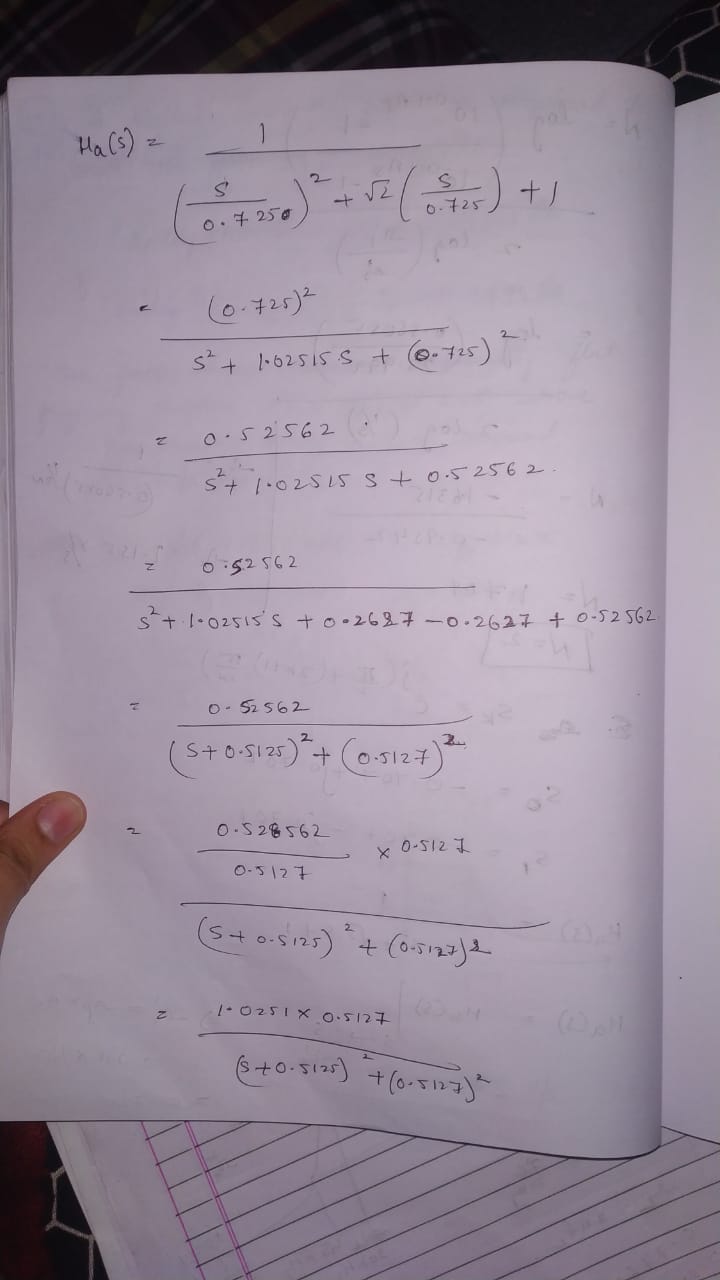 Ha(s) = 1 / ((s/0.7250)² + √2 (s/0.725) + 1)
= (0.725)² / (s² + 1.02515 s + (0.725)²)
= 0.52562 / (s² + 1.02515 s + 0.52562.)
= 0.52562 / (s² + 1.02515 s + 0.2627 - 0.2627 + 0.52562)
= 0.52562 / ((s + 0.5125)² + (0.5127)²)
= (0.528562 / 0.5127 × 0.5127) / ((s + 0.5125)² + (0.5127)²)
= 1.0251 × 0.5127 / ((s + 0.5125)² + (0.5127)²)